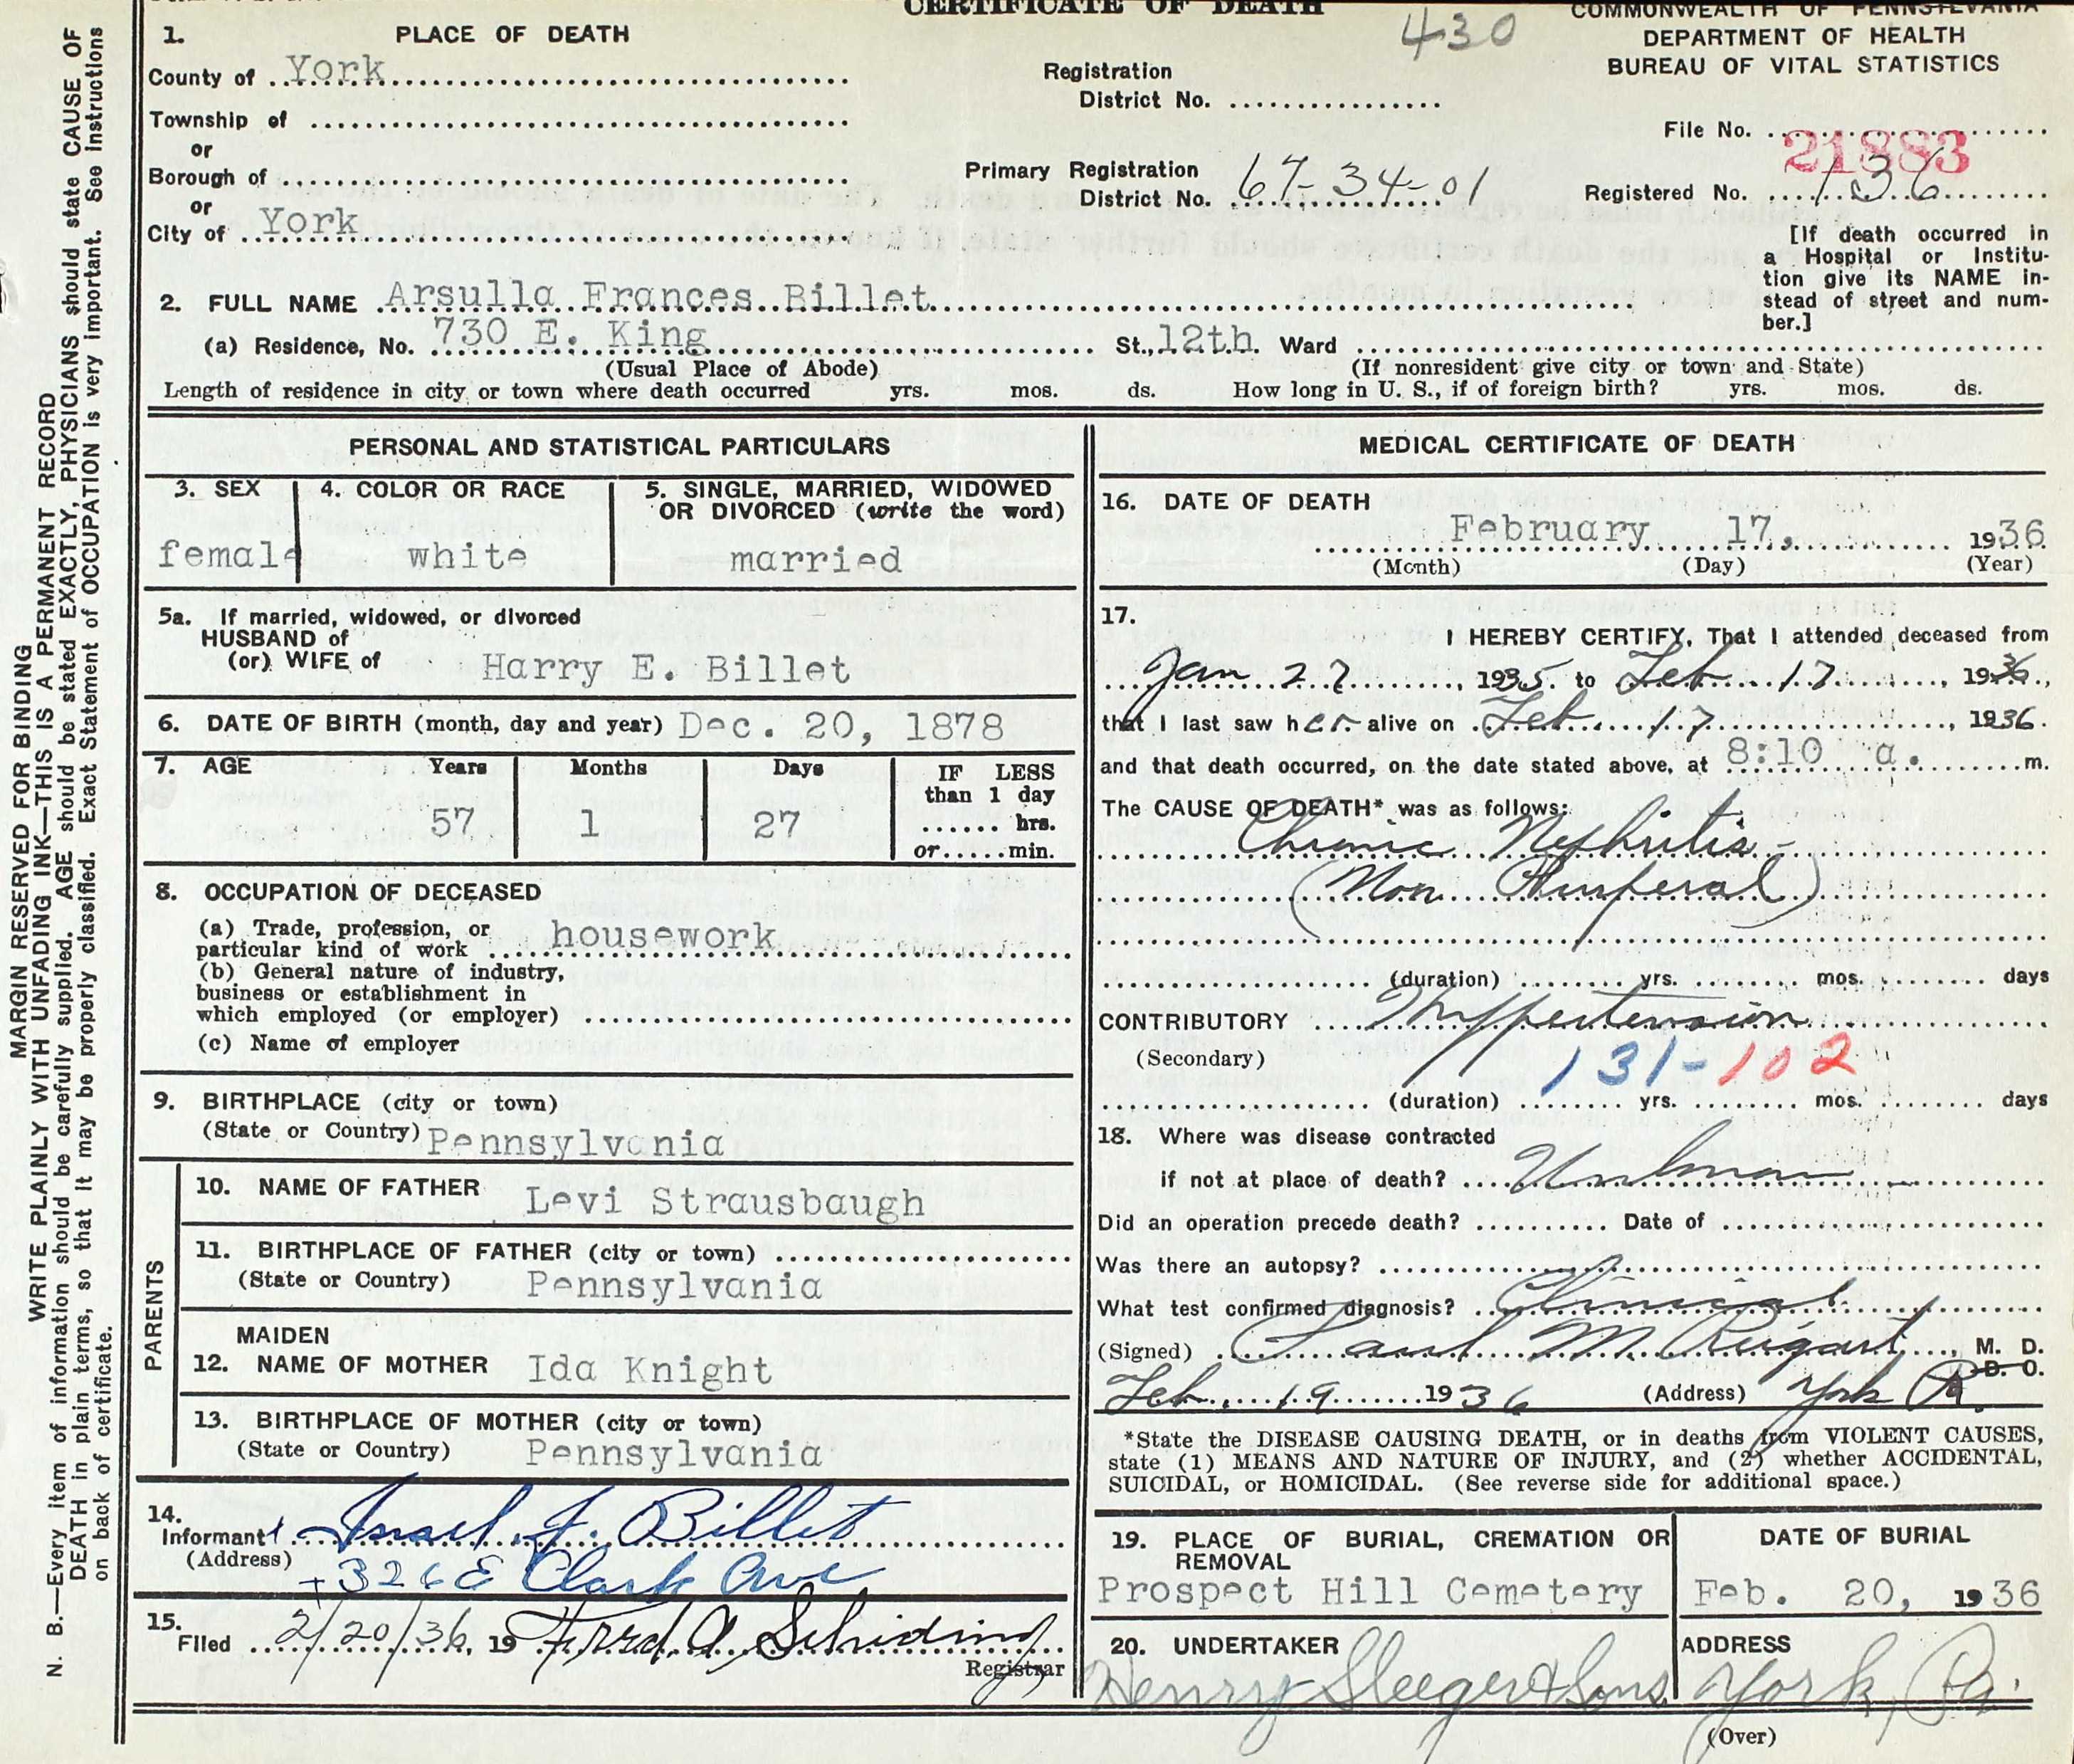 CERTIFICATE OF DEATH
430
COMMONWEALTH OF PENNSYLVANIA
DEPARTMENT OF HEALTH
BUREAU OF VITAL STATISTICS
1. PLACE OF DEATH
County of York
Township of
or
Borough of
or
City of York
Registration
District No.
Primary Registration
District No. 67-34-01
File No. 21883
Registered No. 136
[If death occurred in
a Hospital or Institu-
tion give its NAME in-
stead of street and num-
ber.]
2. FULL NAME Arsulla Frances Billet
(a) Residence, No. 730 E. King St., 12th Ward
(Usual Place of Abode) (If nonresident give city or town and State)
Length of residence in city or town where death occurred yrs. mos. ds. How long in U. S., if of foreign birth? yrs. mos. ds.
PERSONAL AND STATISTICAL PARTICULARS
3. SEX
female
4. COLOR OR RACE
white
5. SINGLE, MARRIED, WIDOWED
OR DIVORCED (write the word)
married
5a. If married, widowed, or divorced
HUSBAND of
(or) WIFE of Harry E. Billet
6. DATE OF BIRTH (month, day and year) Dec. 20, 1878
7. AGE Years Months Days IF LESS
than 1 day
57 1 27 hrs.
or min.
8. OCCUPATION OF DECEASED
(a) Trade, profession, or
particular kind of work housework
(b) General nature of industry,
business or establishment in
which employed (or employer)
(c) Name of employer
9. BIRTHPLACE (city or town)
(State or Country) Pennsylvania
PARENTS
10. NAME OF FATHER Levi Strausbaugh
11. BIRTHPLACE OF FATHER (city or town)
(State or Country) Pennsylvania
MAIDEN
12. NAME OF MOTHER Ida Knight
13. BIRTHPLACE OF MOTHER (city or town)
(State or Country) Pennsylvania
14.
Informant J. Billet
(Address) 326 E Clark Ave
15.
Filed 2/20/36, 19 Fred. A.
Registrar
MEDICAL CERTIFICATE OF DEATH
16. DATE OF DEATH
February 17, 1936
(Month) (Day) (Year)
17.
I HEREBY CERTIFY, That I attended deceased from
Jan 27, 1935 to Feb 17, 1936,
that I last saw her alive on Feb 17, 1936.
and that death occurred, on the date stated above, at 8:10 a. m.
The CAUSE OF DEATH* was as follows:
Chronic Nephritis -
(Non Puerperal)
(duration) yrs. mos. days
CONTRIBUTORY Hypertension
(Secondary)
131-102
(duration) yrs. mos. days
18. Where was disease contracted
if not at place of death? Unknown
Did an operation precede death? Date of
Was there an autopsy?
What test confirmed diagnosis? Clinical
(Signed) Paul M. , M. D.
D. O.
Feb. 19 1936 (Address) York Pa.
*State the DISEASE CAUSING DEATH, or in deaths from VIOLENT CAUSES,
state (1) MEANS AND NATURE OF INJURY, and (2) whether ACCIDENTAL,
SUICIDAL, or HOMICIDAL. (See reverse side for additional space.)
19. PLACE OF BURIAL, CREMATION OR
REMOVAL
Prospect Hill Cemetery
DATE OF BURIAL
Feb. 20, 1936
20. UNDERTAKER
Henry Sleeger & Sons
ADDRESS
York, Pa.
(Over)
MARGIN RESERVED FOR BINDING
WRITE PLAINLY WITH UNFADING INK—THIS IS A PERMANENT RECORD
N. B.—Every item of information should be carefully supplied. AGE should be stated EXACTLY, PHYSICIANS should state CAUSE OF
DEATH in plain terms, so that it may be properly classified. Exact Statement of OCCUPATION is very important. See instructions
on back of certificate.